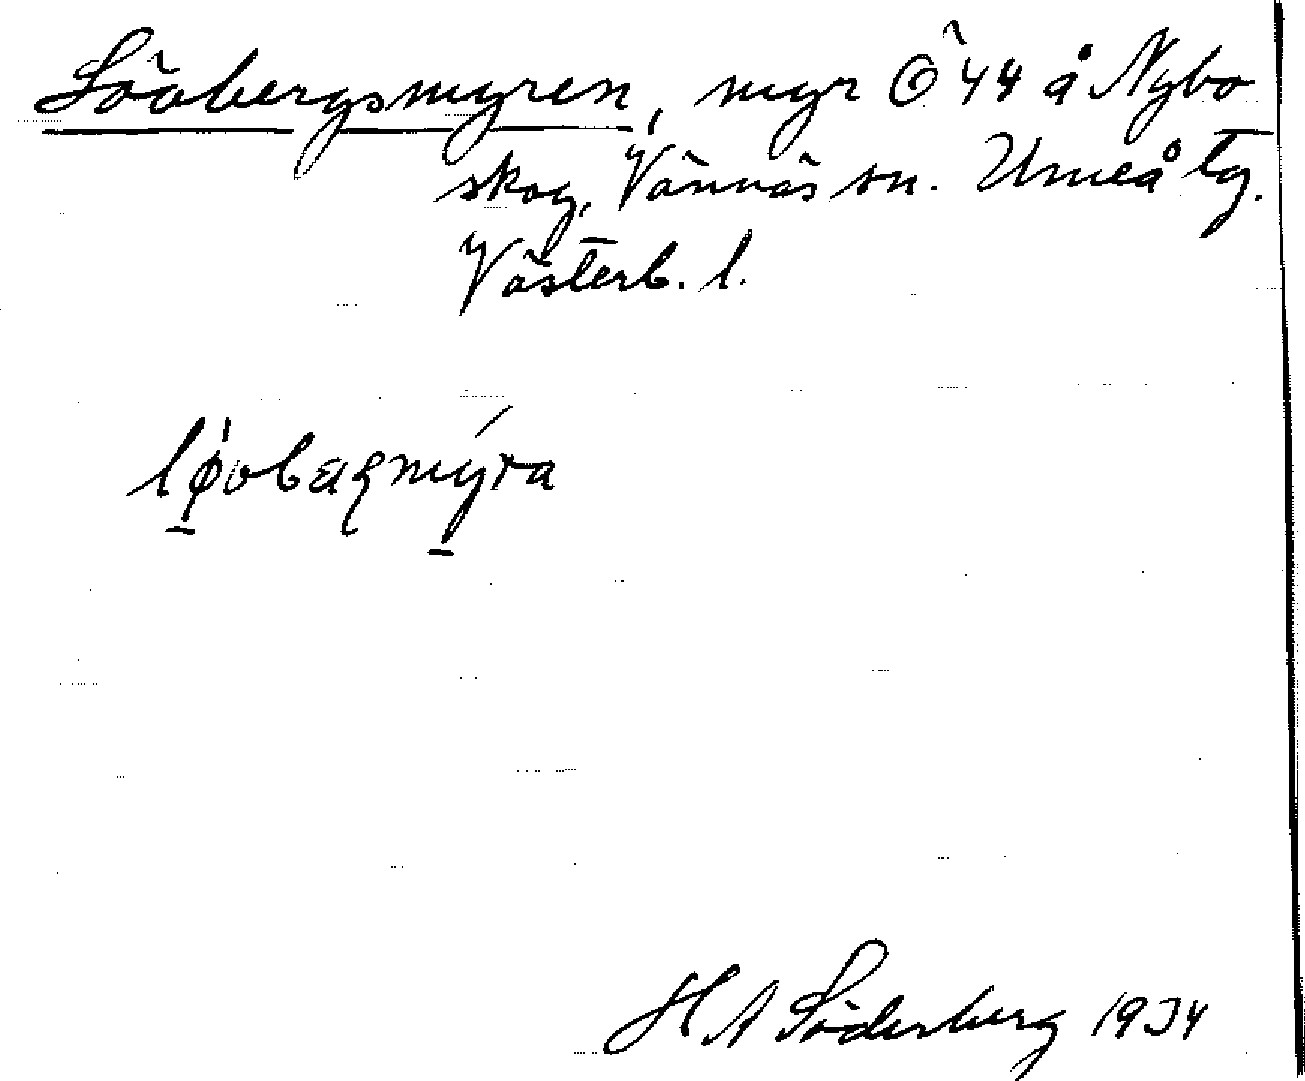 Lövbergsmyren, myr Ö 44 å Nybo
skog, Vännäs sn. Umeå tg.
Västerb. l.
lǿvbæʀmý̱ra
H A Söderberg 1934